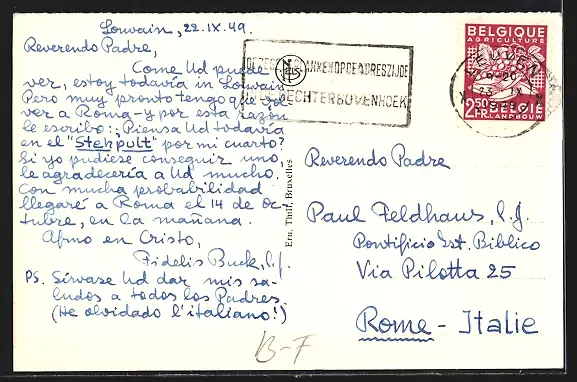 Louvain, 22.IX.49.
Reverendo Padre,
Como Ud puede
ver, estoy todavía in Lovain
Pero muy pronto tengo que vol-
ver a Roma - y por esta razón
le escribo: ¿Piensa Ud todavía
en el "Stehpult" por mi cuarto?
Si yo pudiese conseguir uno,
le agradecería a Ud mucho.
Con mucha probabilidad
llegaré a Roma el 14 de oc-
tubre, en la mañana.
Afmo en Cristo,
Fidelis Buck, S.J.
PS. Sírvase Ud dar mis sa-
ludos a todos los Padres.
(He olvidado l'italiano!)
B-F
Ern. Thill, Bruxelles
POSTZEGELS PLAKKEN OP DE ADRESZIJDE
RECHTERBOVENHOEK
BELGIQUE
AGRICULTURE
2.50
FR.
BELGIE
LANDBOUW
Reverendo Padre
Paul Feldhaus, S.J.
Pontificio Ist. Biblico
Via Pilotta 25
Rome - Italie